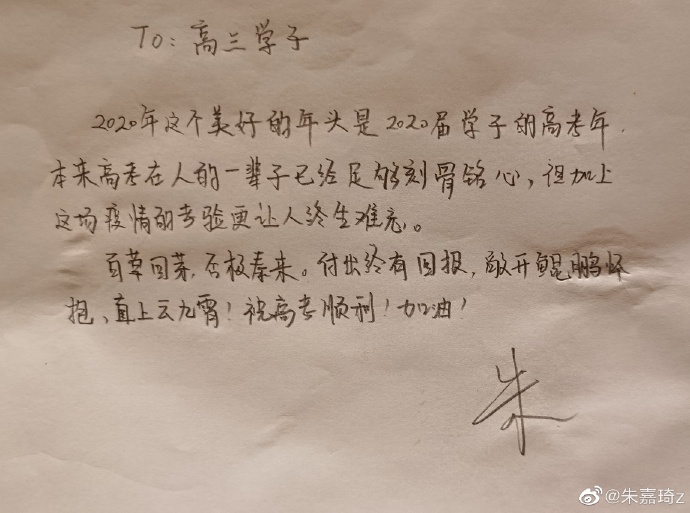 To: 高三学子
2020年这个美好的年头是2020届学子的高考年.
本来高考在人的一辈子已经足够刻骨铭心,但加上
这场疫情的考验更让人终生难忘。
百草回芽,否极泰来。付出终有回报,敞开鲲鹏怀
抱、直上云九霄!祝高考顺利!加油!
朱
@朱嘉琦z